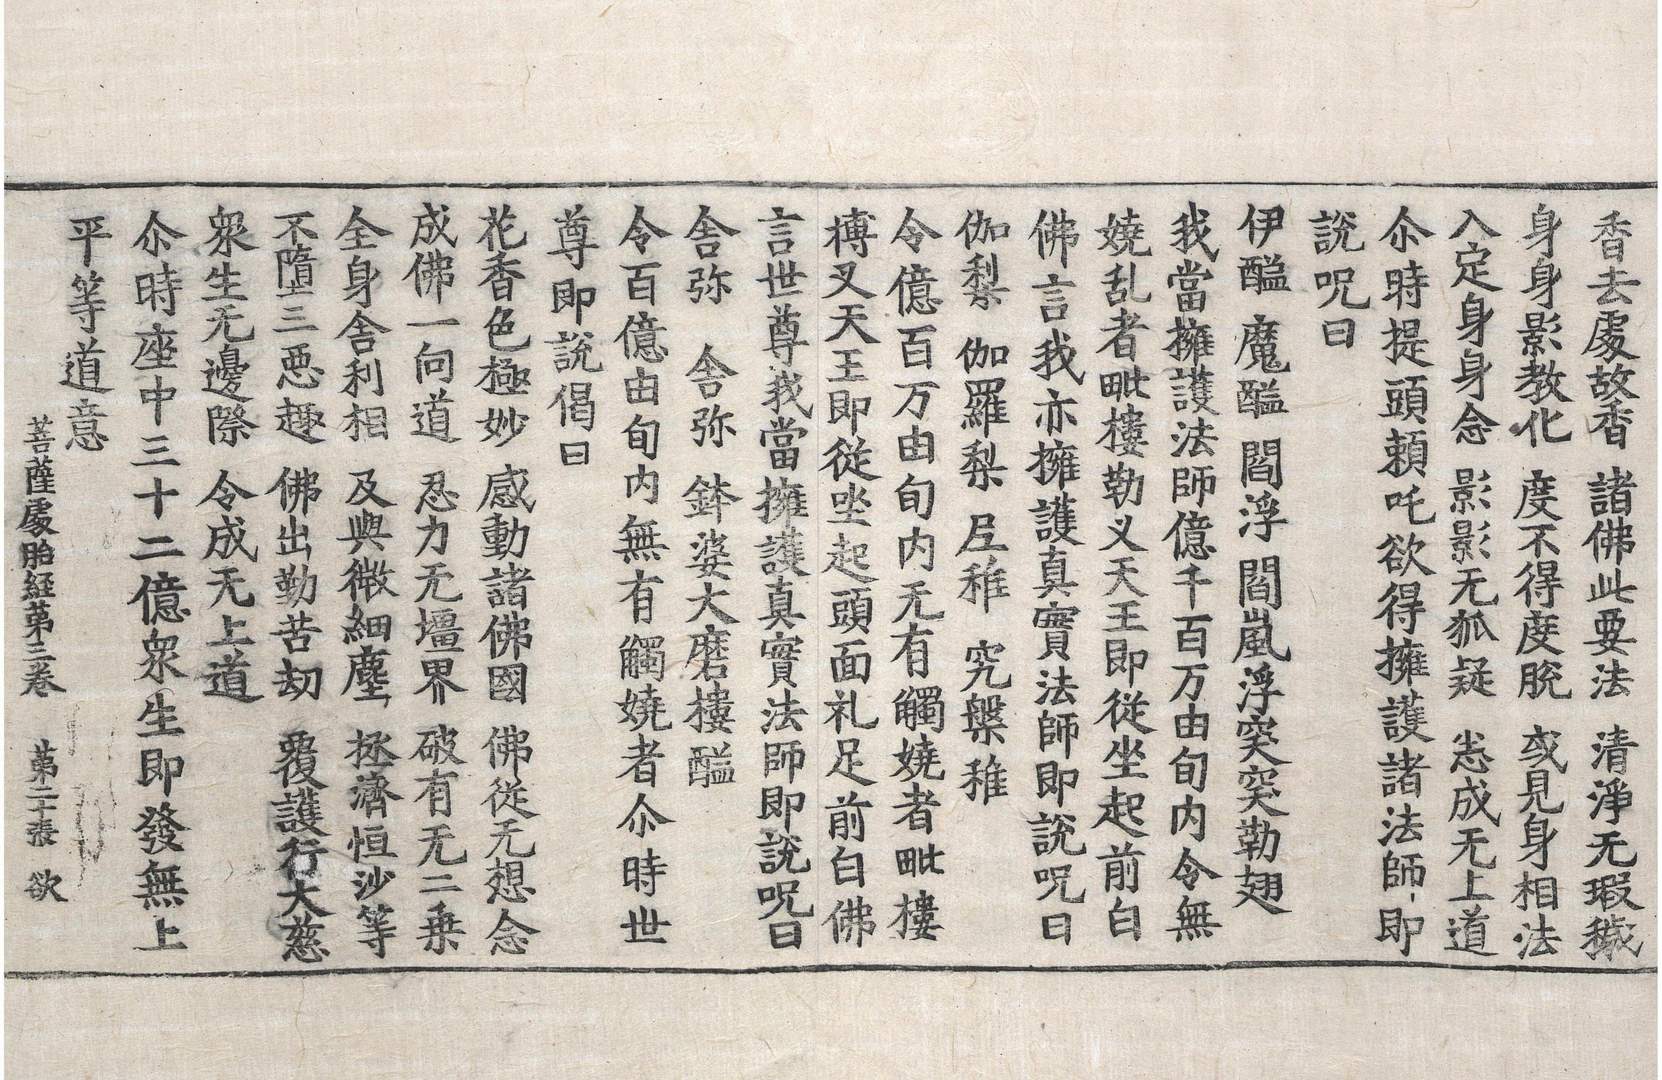 香去處故香 諸佛此要法 清淨无瑕穢
身身影教化 度不得度脫 或見身相法
入定身身念 影影无狐疑 恙成无上道
尒時提頭頼吒欲得擁護諸法師即
說呪曰
伊醯 魔醯 閻浮 閻嵐浮突突勒翅
我當擁護法師億千百万由旬内令無
嬈乱者毗樓勒叉天王即從坐起前白
佛言我亦擁護真實法師即說呪曰
伽梨 伽羅梨 㞐稚 究槃稚
令億百万由旬内无有觸嬈者毗樓
博叉天王即從坐起頭面礼足前白佛
言世尊我當擁護真實法師即說呪曰
舍弥 舍弥 鉢婆大磨樓醯
令百億由旬内無有觸嬈者尒時世
尊即說偈曰
花香色極妙 感動諸佛國 佛從无想念
成佛一向道 忍力无壃界 破有无二乗
全身舍利相 及與微細塵 拯濟恒沙等
不隋三悪趣 佛出勤苦劫 覆護行大慈
衆生无邊際 令成无上道
尒時座中三十二億衆生即發無上
平等道意
菩薩處胎經第三卷 第二十張 欲